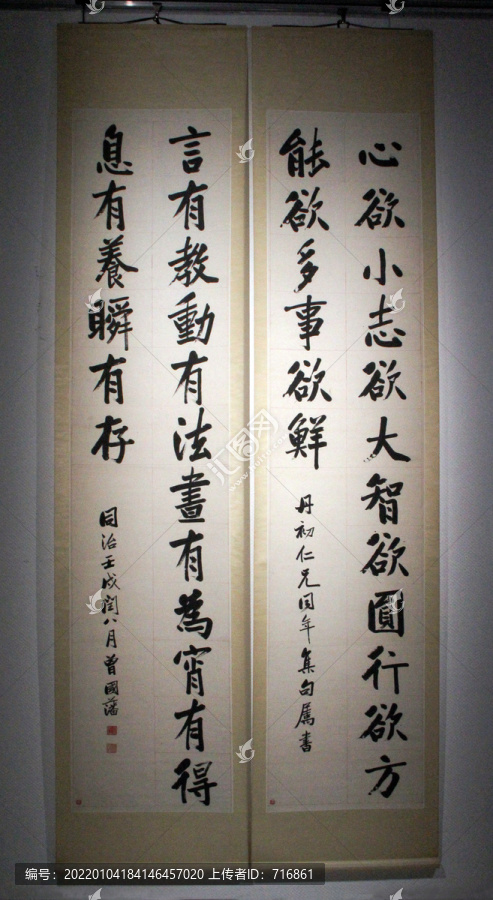 心欲小志欲大智欲圓行欲方
能欲多事欲鮮
丹初仁兄同年集句属書
言有教動有法晝有為宵有得
息有養瞬有存
同治壬戌閏八月曾國藩
汇图网
编号：20220104184146457020 上传者ID：716861